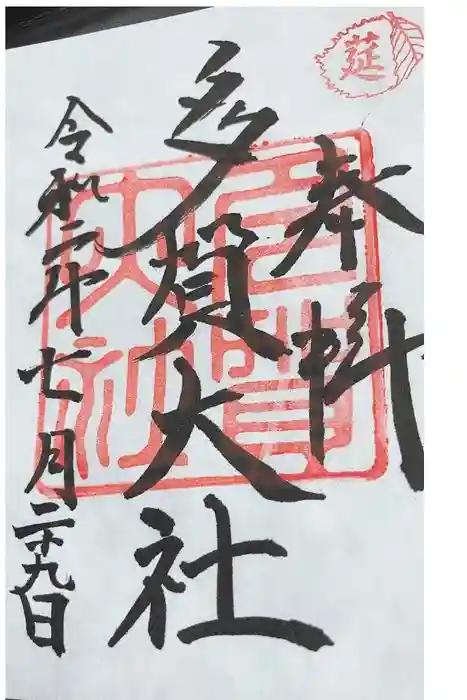 莚
奉拝
多賀大社
多賀大社
令和二年七月二十九日